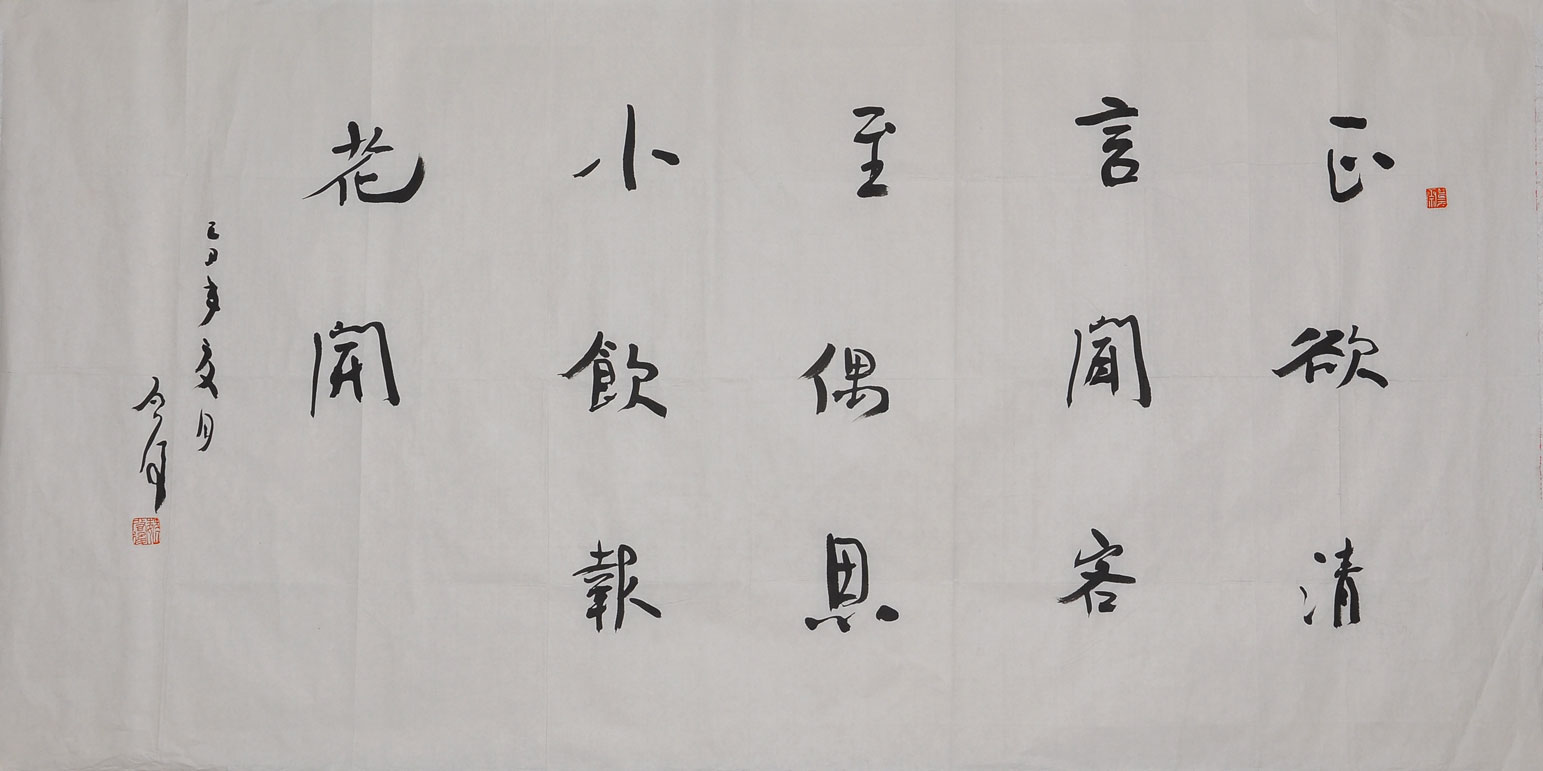 正欲清
言聞客
至偶思
小飲報
花開
己丑年夏月